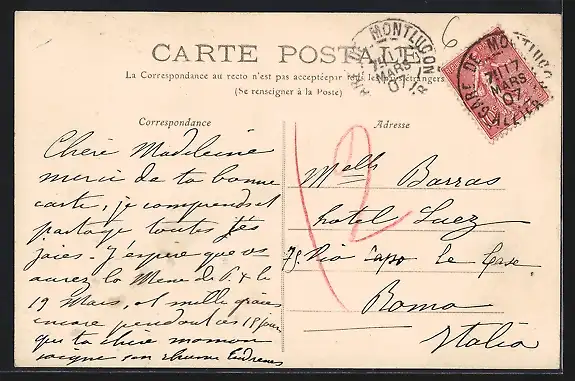 CARTE POSTALE
La Correspondance au recto n'est pas acceptée par tous les pays étrangers
(Se renseigner à la Poste)
Correspondance
Adresse
MONTLUÇON
MARS
07
GARE DE MONTLUÇON
7H 17
MARS
07
ALLIER
6
2
Chère Madeleine
merci de ta bonne
carte, je comprends et
partage toutes tes
joies. J'espère que vs
aurez la Messe de
19 Mars, et mille
encore pendant ces 18 jours
que ta chère maman
soigne son rhume
Melle Barras
hotel Suez
75 Via Capo le Case
Roma
Italia